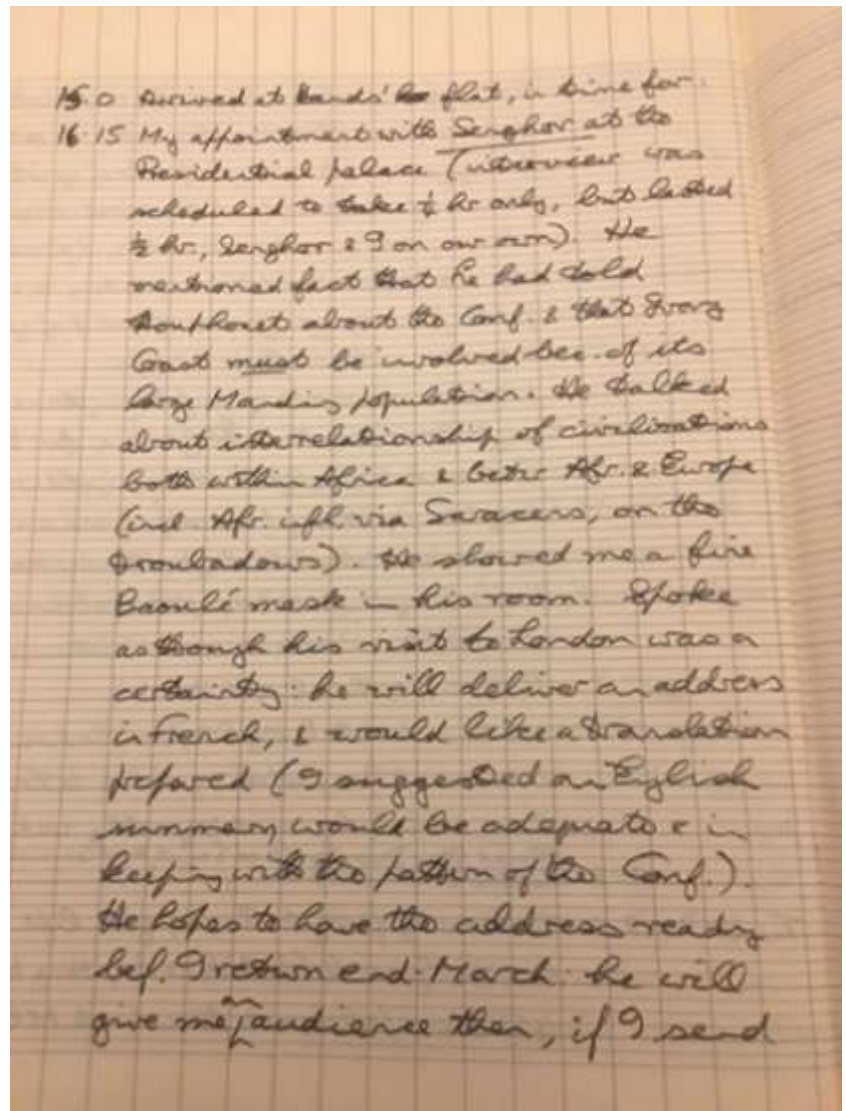 15 0 Arrived at Rands' flat, in time for
16 15 My appointment with Senghor at the
Presidential palace (interview was
scheduled to take ¼ hr only, but lasted
½ hr., Senghor & I on our own). He
mentioned fact that he had told
Houphouet about the Conf. & that Ivory
Coast must be involved bec. of its
large Manding population. He talked
about interrelationship of civilizations
both within Africa & betw. Afr. & Europe
(incl. Afr. infl. via Saracens, on the
troubadours). He showed me a fine
Baoulé mask in his room. Spoke
as though his visit to London was a
certainty: he will deliver an address
in French, & would like a translation
prepared (I suggested an English
summary would be adequate & in
keeping with the pattern of the Conf.).
He hopes to have the address ready
bef. I return end-March: he will
give me an audience then, if I send